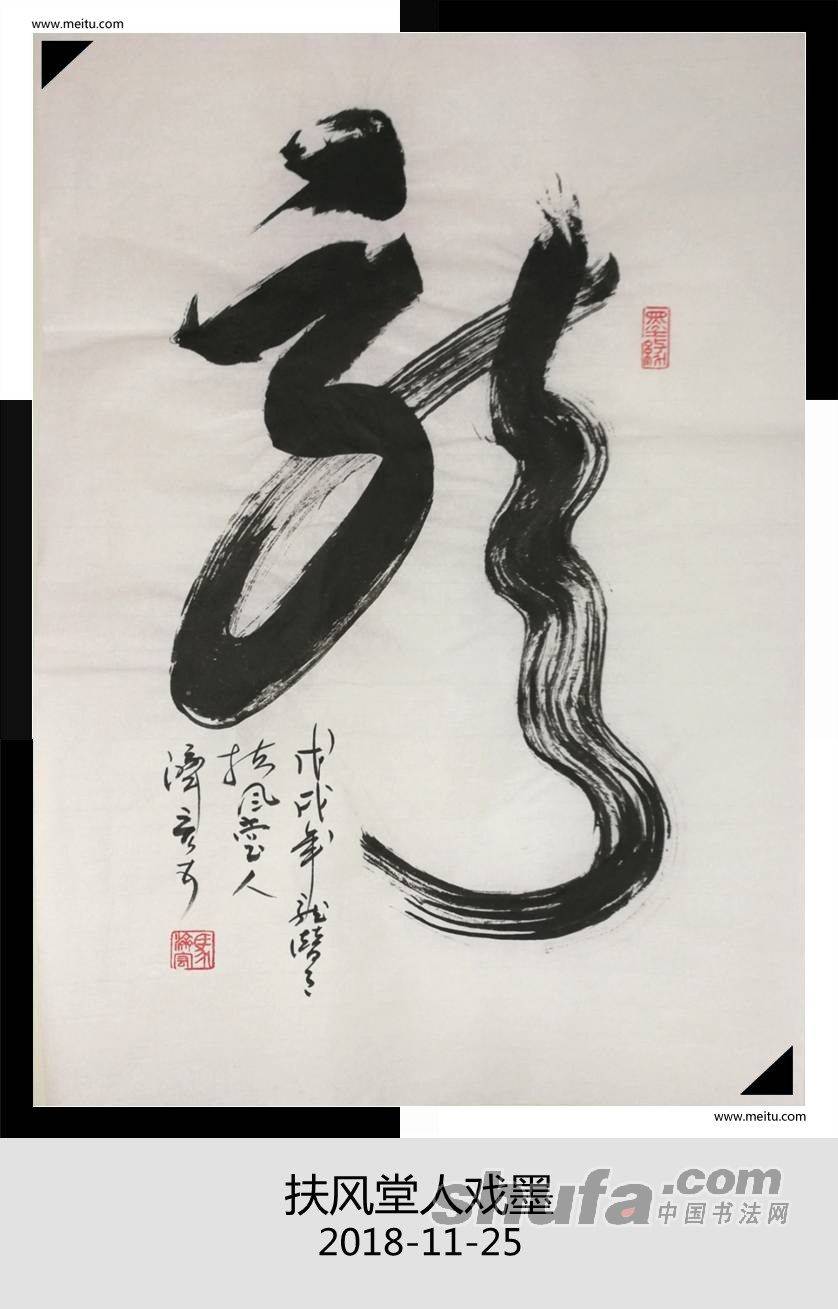 www.meitu.com
龍
戊戌年
扶风堂人
www.meitu.com
扶风堂人戏墨
2018-11-25
shufa.com
中国书法网